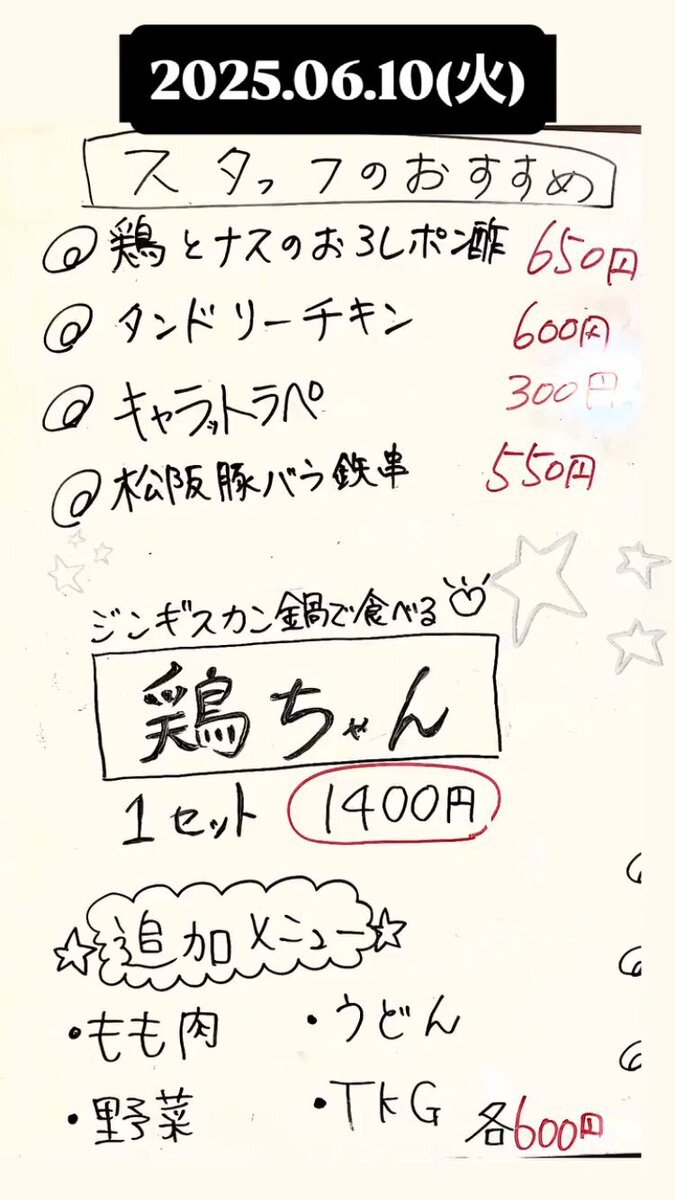 2025.06.10(火)
スタッフのおすすめ
鶏とナスのおろしポン酢 650円
タンドリーチキン 600円
キャラットラペ 300円
松阪豚バラ鉄串 550円
ジンギスカン鍋で食べる
鶏ちゃん
1セット 1400円
追加メニュー
・もも肉 ・うどん
・野菜 ・TKG 各600円